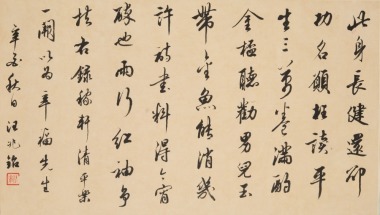 此身長健還卻
功名願枉讀平
生三萬卷滿酌
金杯聽勸男兒玉
帶金魚能消幾
許詩書料得今宵
醉也兩行紅袖爭
扶右錄稼軒清平樂
一闋以為福先生
辛秋日汪兆銘